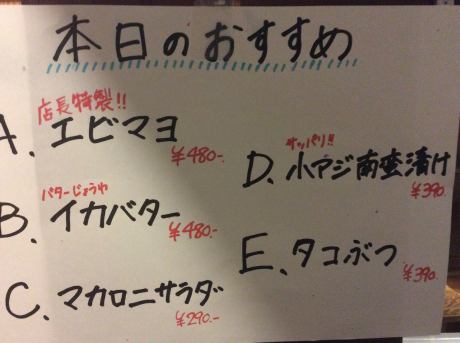 本日のおすすめ
店長特製!!
A. エビマヨ
¥480-
バターじょうゆ
B. イカバター
¥480-
C. マカロニサラダ
¥290-
サッパリ!!
D. 小アジ南蛮漬け
¥390
E. タコぶつ
¥390